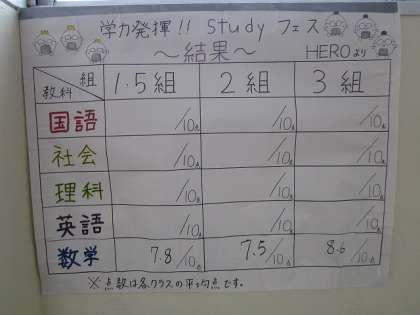 学力発揮!! Study フェス
～結果～ HEROより
教科 組 1.5組 2組 3組
国語 /10点 /10点 /10点
社会 /10点 /10点 /10点
理科 /10点 /10点 /10点
英語 /10点 /10点 /10点
数学 7.8/10点 7.5/10点 8.6/10点
※点数は各クラスの平均点です。